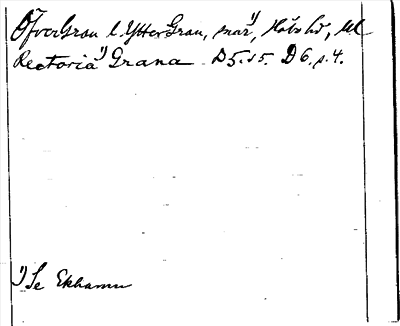 ÖfverGran l. YtterGran, snar¹), Håbo hd, Upl
Rectoria¹) Grana D5. s 5. D6. s. 4.
¹) Se Ekhamn